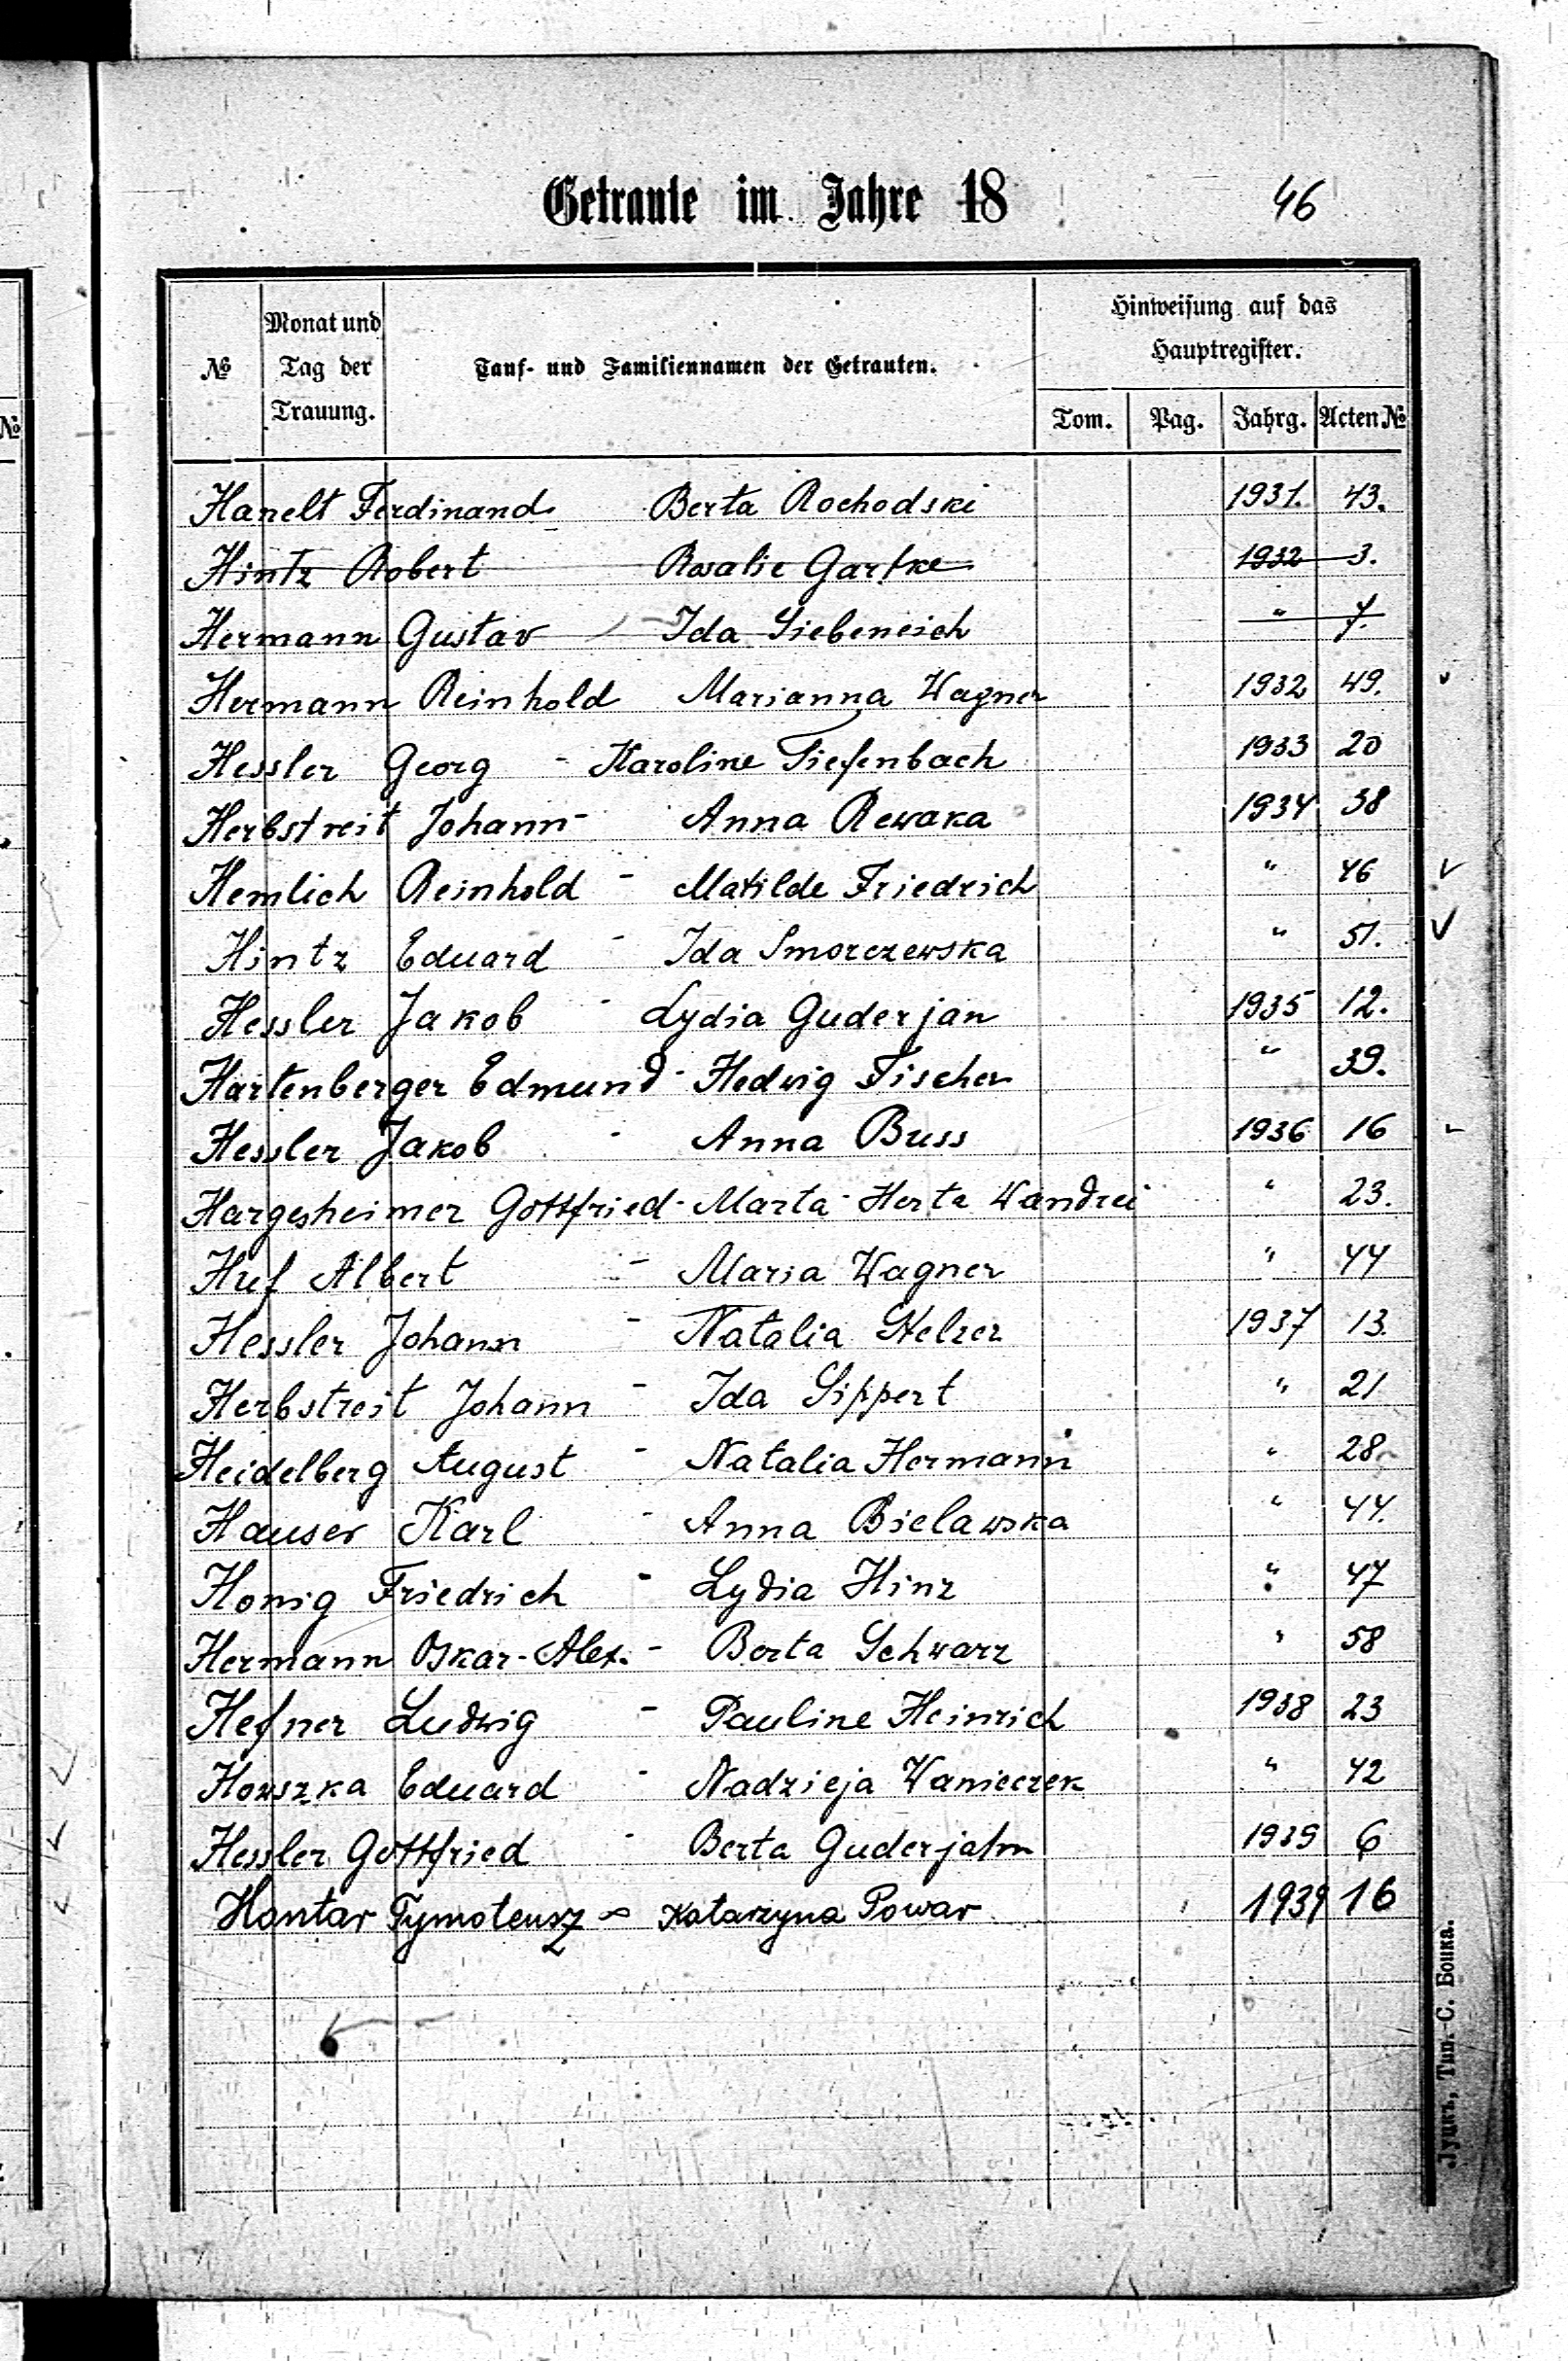 Getraute im Jahre 18
46
№
Monat und
Tag der
Trauung.
Tauf- und Familiennamen der Getrauten.
Hinweisung auf das
Hauptregister.
Tom. Pag. Jahrg. Acten №
№
Hanelt Ferdinand Berta Rochodski 1931. 43.
Hintz Robert Rosalie Gartke 1932 3.
Hermann Gustav Ida Siebeneich " 7.
Hermann Reinhold Marianna Wagner 1932 49.
Hessler Georg - Karoline Tiefenbach 1933 20
Herbstreit Johann - Anna Rewaka 1934 38
Hemlich Reinhold - Matilde Friedrich " 46
Hintz Eduard - Ida Smorczewska " 51.
Hessler Jakob - Lydia Guderjan 1935 12.
Hartenberger Edmund - Hedwig Fischer " 39.
Hessler Jakob - Anna Buss 1936 16
Hargesheimer Gottfried - Marta-Herta Wandrei " 23.
Huf Albert - Maria Wagner " 44
Hessler Johann - Natalia Stelzer 1937 13.
Herbstreit Johann - Ida Sippert " 21
Heidelberg August - Natalia Hermann " 28
Hauser Karl - Anna Bielawska " 44.
Honig Friedrich - Lydia Hinz " 47
Hermann Oskar-Alex. - Berta Schwarz " 58
Hefner Ludwig - Pauline Heinrich 1938 23
Howszka Eduard - Nadzieja Wanieczek " 42
Hessler Gottfried - Berta Guderjahn 1939 6
Hontar Tymoteusz ∞ Katarzyna Powar 1939 16
Луцкъ, Тип. С. Бонка.